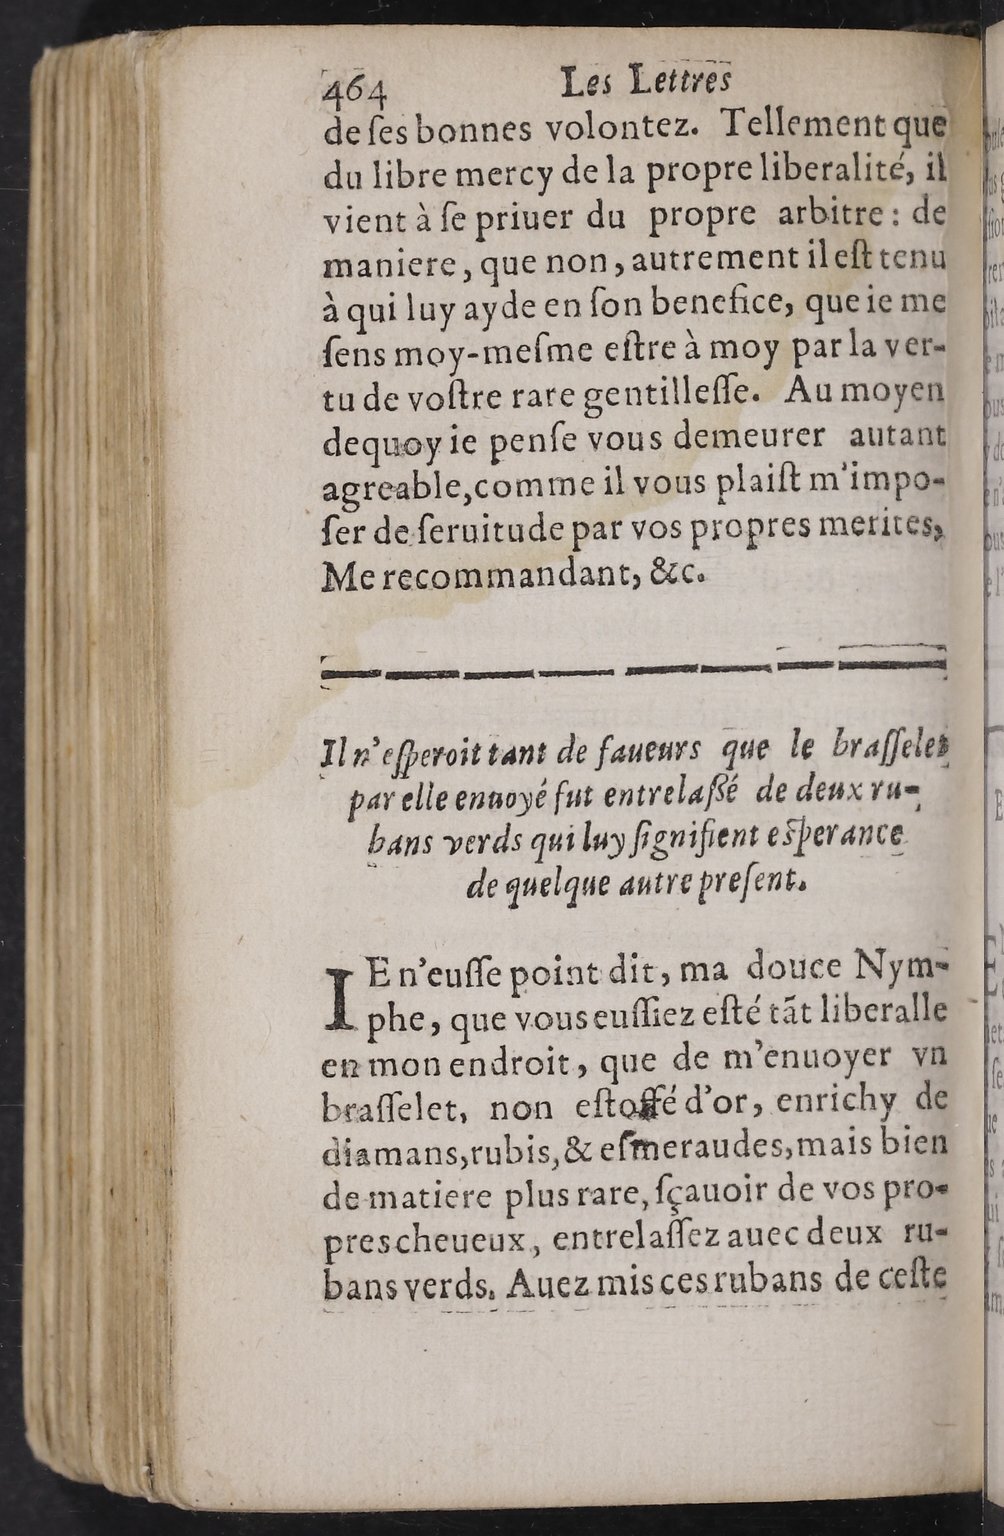 464 Les Lettres
de ſes bonnes volontez. Tellement que
du libre mercy de la propre liberalité, il
vient à ſe priuer du propre arbitre : de
maniere, que non, autrement il eſt tenu
à qui luy ayde en ſon benefice, que ie me
ſens moy-meſme eſtre à moy par la ver-
tu de voſtre rare gentilleſſe. Au moyen
dequoy ie penſe vous demeurer autant
agreable, comme il vous plaiſt m'impo-
ſer de ſeruitude par vos propres merites,
Me recommandant, &c.
Il n'eſperoit tant de faueurs que le braſſelet
par elle enuoyé fut entrelaßé de deux ru-
bans verds qui luy ſignifient eſperance
de quelque autre preſent.
IE n'euſſe point dit, ma douce Nym-
phe, que vous euſſiez eſté tãt liberalle
en mon endroit, que de m'enuoyer vn
braſſelet, non eſtoffé d'or, enrichy de
diamans, rubis, & eſmeraudes, mais bien
de matiere plus rare, ſçauoir de vos pro-
pres cheueux, entrelaſſez auec deux ru-
bans verds. Auez mis ces rubans de ceſte